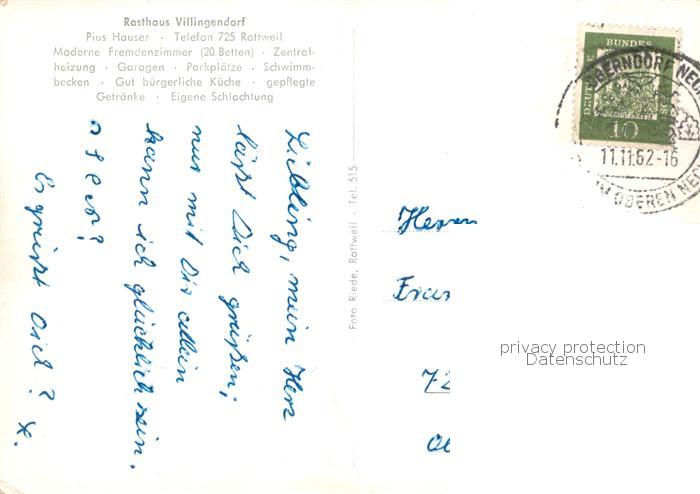 Rasthaus Villingendorf
Pius Hauser · Telefon 725 Rottweil
Moderne Fremdenzimmer (20 Betten) · Zentral-
heizung · Garagen · Parkplätze · Schwimm-
becken · Gut bürgerliche Küche · gepflegte
Getränke · Eigene Schlachtung
Liebling, mein Herz
läßt Dich grüßen;
nur mit Dir allein
kann ich glücklich sein.
oder?
Es grüßt Dich?
Foto Riede, Rottweil · Tel. 515
DEUTSCHE BUNDESPOST
10
OBERNDORF
11.11.62-16
IM OBEREN
Herrn
72
privacy protection
Datenschutz